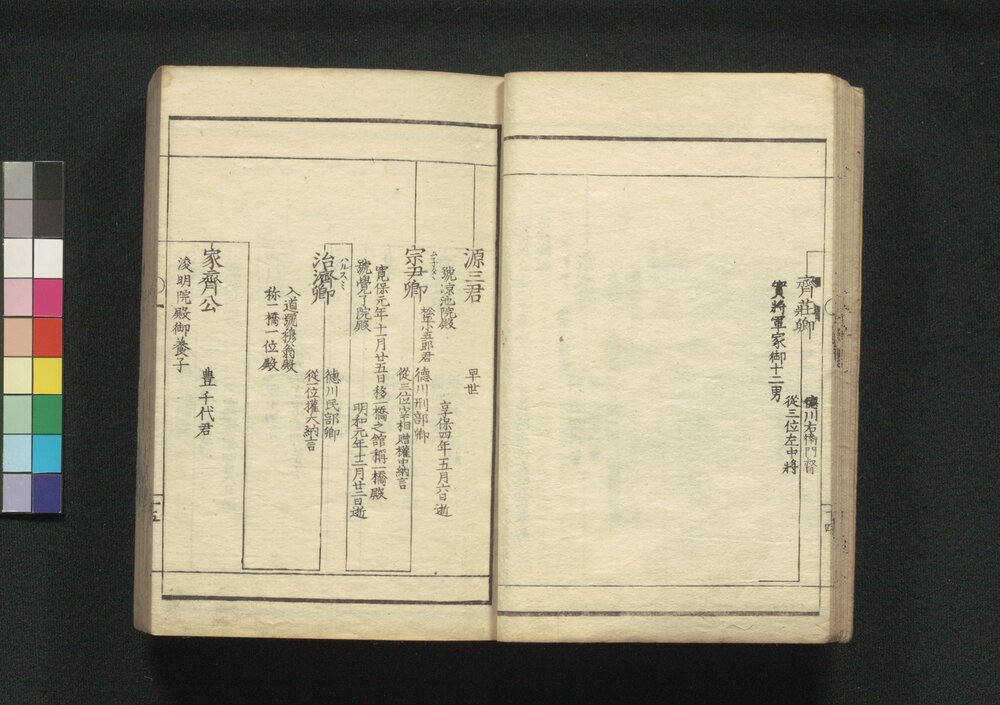 齊莊卿
德川右衛門督
從三位左中將
實將軍家御十二男
十四
源三君
早世
號凉池院殿
享保四年五月六日逝
宗尹卿
ムネタヾ
松平小五郎君
德川刑部卿
從三位宰相贈權中納言
寬保元年十一月廿五日移一橋之館稱一橋殿
號覺了院殿
明和元年十二月廿二日逝
治濟卿
ハルスミ
德川民部卿
從一位權大納言
入道號穆翁殿
称一橋一位殿
家齊公
豊千代君
浚明院殿御養子
十五